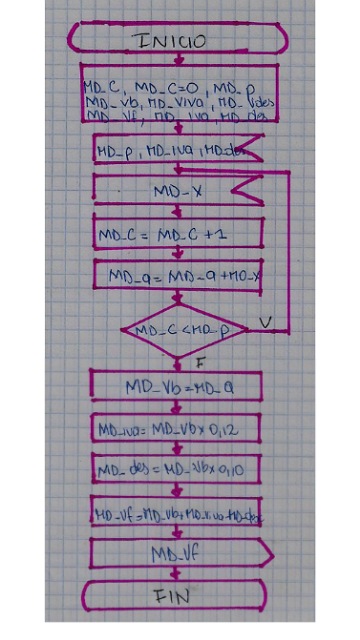 INICIO
MD_C, MD_C=0, MD_p
MD_vb, MD_viva, MD_vdes
MD_vf, MD_iva, MD_des
MD_p, MD_iva, MD_des
MD_X
MD_C = MD_C +1
MD_a= MD_a +MD_X
MD_C <MD_p
V
F
MD_Vb=MD_a
MD_iva= MD_Vb x 0,12
MD_des =MD_Vb x 0,10
MD_vf=MD_vb+MD_viva+MD_desc
MD_Vf
FIN